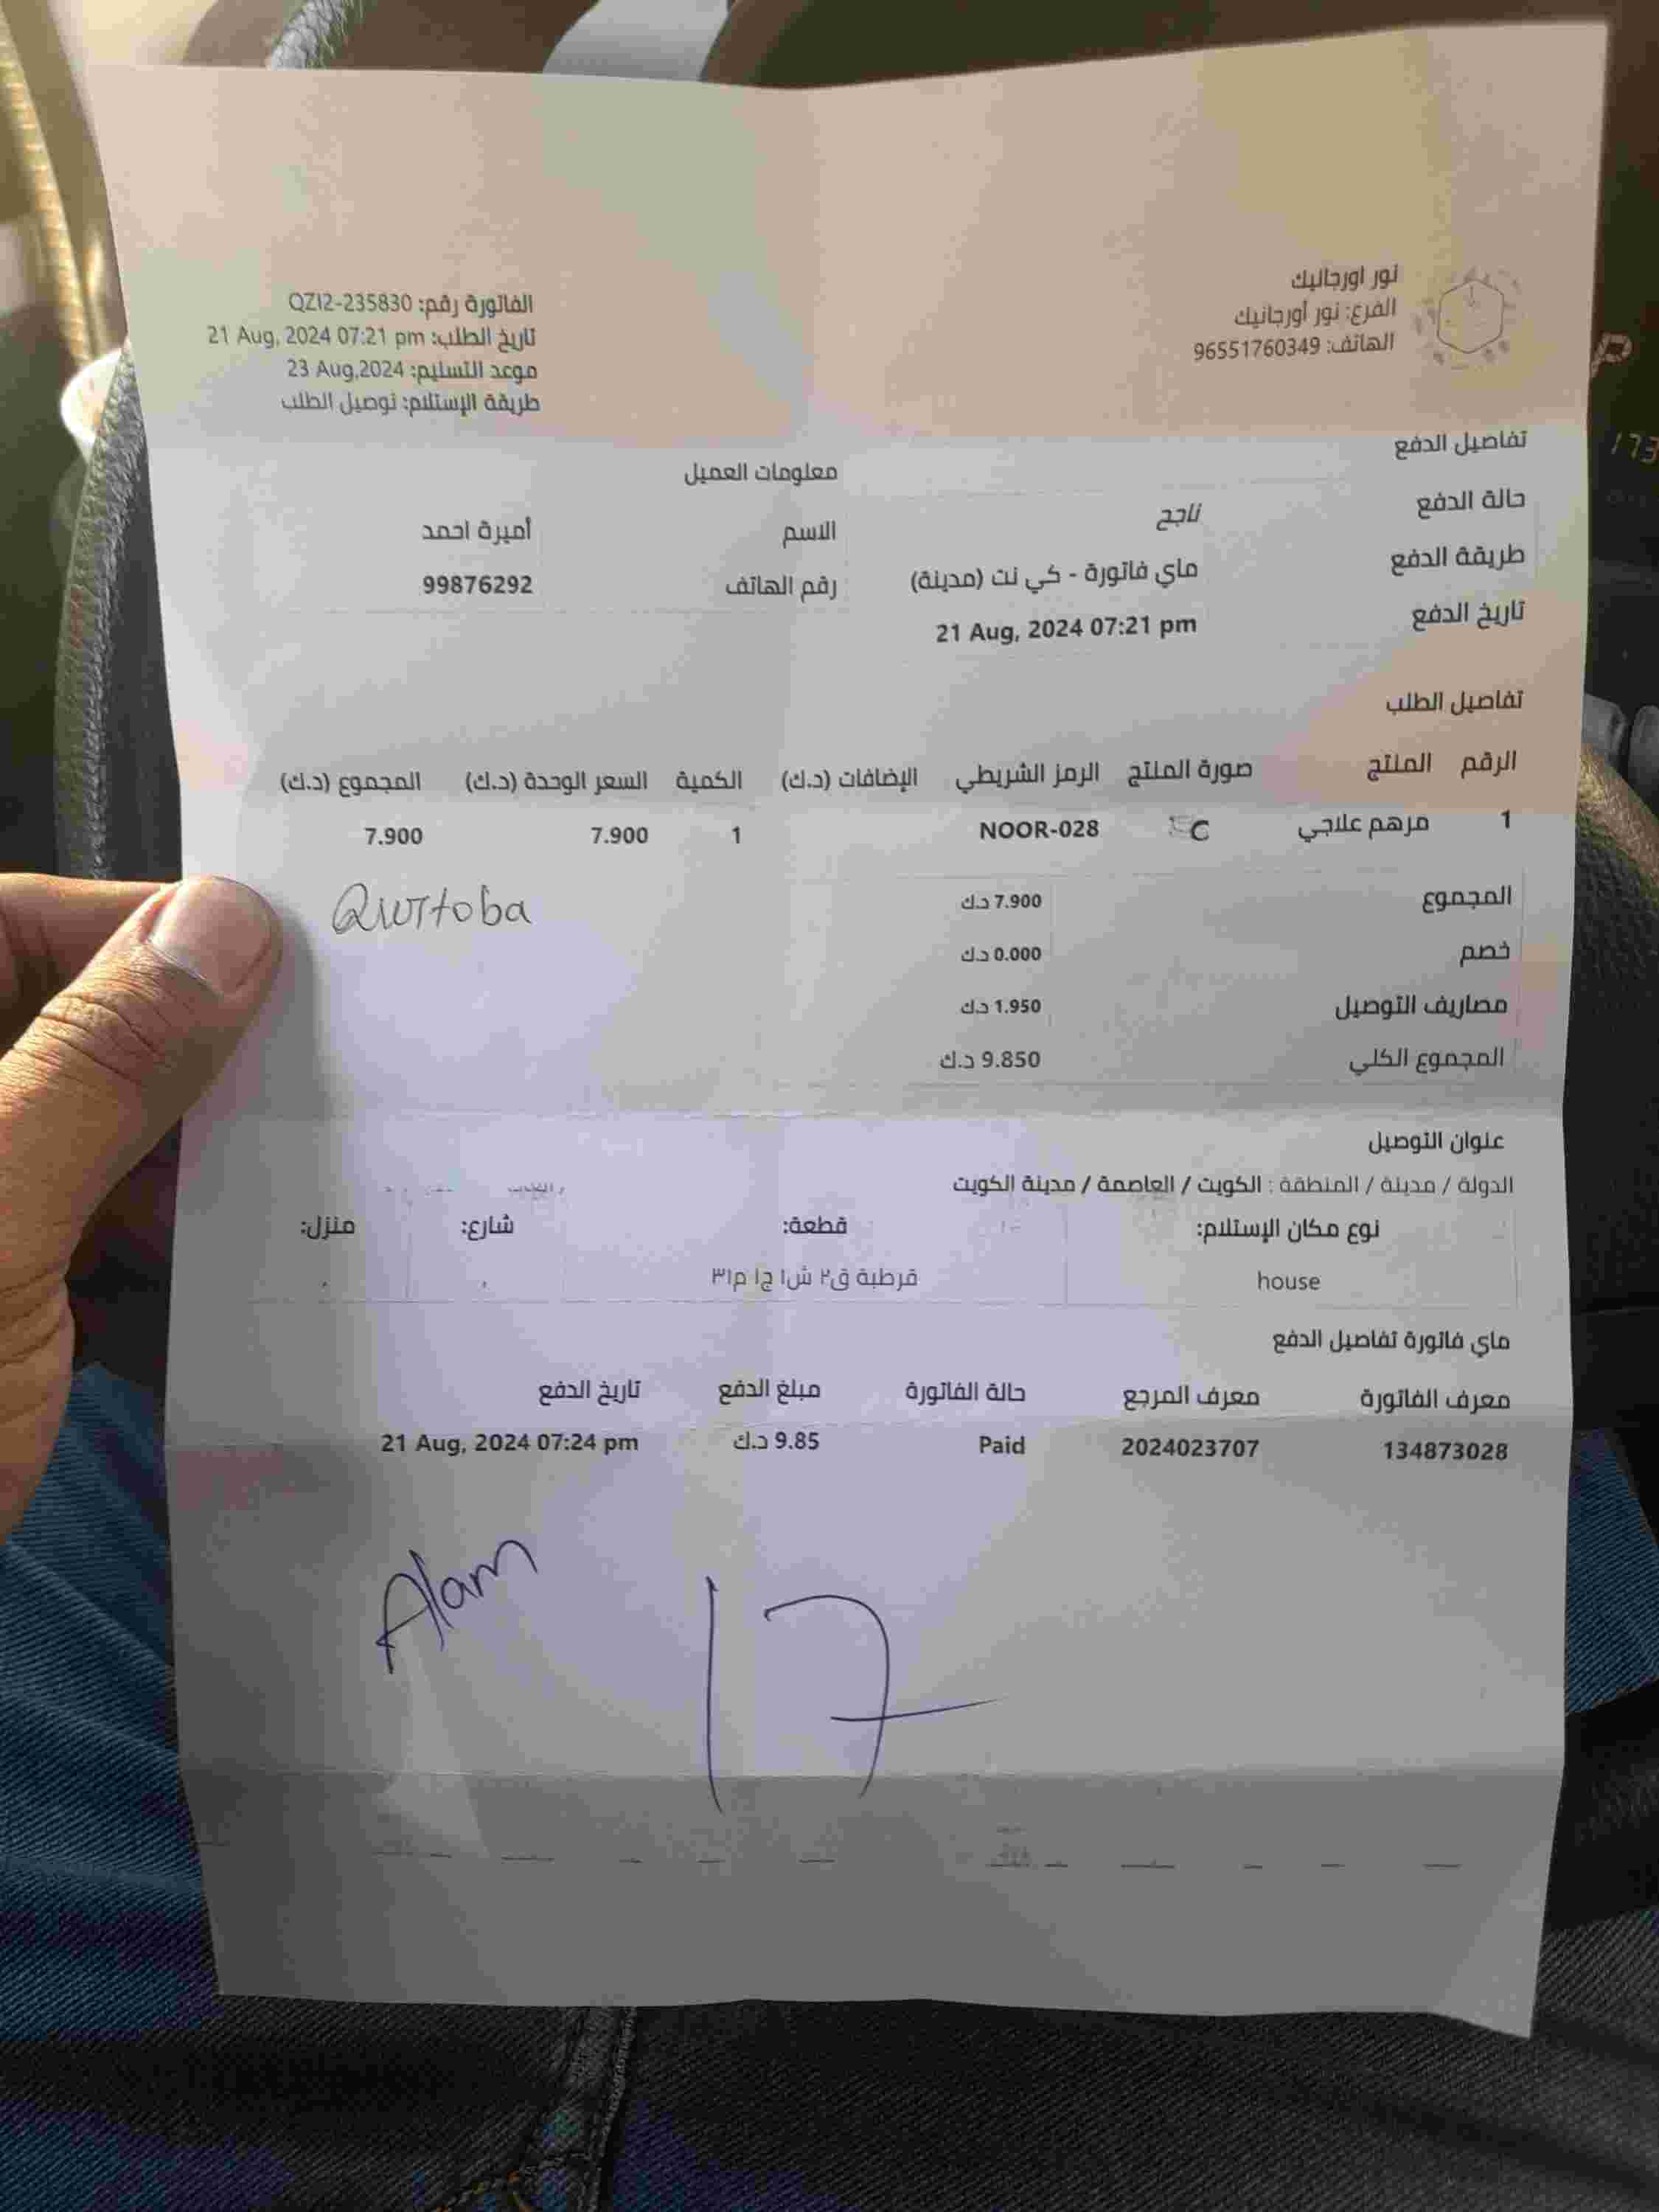 نور اورجانيك
الفرع: نور أورجانيك
الهاتف: 96551760349
الفاتورة رقم: QZI2-235830
تاريخ الطلب: 21 Aug, 2024 07:21 pm
موعد التسليم: 23 Aug,2024
طريقة الإستلام: توصيل الطلب
تفاصيل الدفع
حالة الدفع ناجح
طريقة الدفع ماي فاتورة - كي نت (مدينة)
تاريخ الدفع 21 Aug, 2024 07:21 pm
معلومات العميل
الاسم أميرة احمد
رقم الهاتف 99876292
تفاصيل الطلب
الرقم المنتج صورة المنتج الرمز الشريطي الإضافات (د.ك) الكمية السعر الوحدة (د.ك) المجموع (د.ك)
1 مرهم علاجي NOOR-028 1 7.900 7.900
Qurtoba
المجموع 7.900 د.ك
خصم 0.000 د.ك
مصاريف التوصيل 1.950 د.ك
المجموع الكلي 9.850 د.ك
عنوان التوصيل
الدولة / مدينة / المنطقة : الكويت / العاصمة / مدينة الكويت
نوع مكان الإستلام: قطعة: شارع: منزل:
house قرطبة ق٢ ش١ ج١ م٣١ . .
ماي فاتورة تفاصيل الدفع
معرف الفاتورة معرف المرجع حالة الفاتورة مبلغ الدفع تاريخ الدفع
134873028 2024023707 Paid 9.85 د.ك 21 Aug, 2024 07:24 pm
Alam
17
173